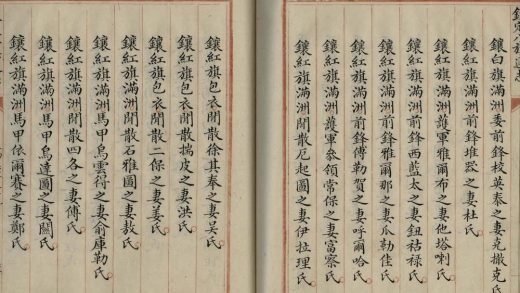 鑲白旗滿洲委前鋒校英泰之妻克撤克氏
鑲紅旗滿洲前鋒堆器之妻杜氏
鑲紅旗滿洲護軍雅爾布之妻他塔喇氏
鑲紅旗滿洲前鋒西藍太之妻鈕祜祿氏
鑲紅旗滿洲前鋒雅爾那之妻瓜勒佳氏
鑲紅旗滿洲前鋒傅勒賀之妻呼爾哈氏
鑲紅旗滿洲護軍參領常保之妻富察氏
鑲紅旗滿洲閒散尼起圖之妻伊拉理氏
鑲紅旗包衣閒散徐其奉之妻吳氏
鑲紅旗包衣閒散揣皮之妻洪氏
鑲紅旗包衣閒散二保之妻姜氏
鑲紅旗滿洲閒散石雅圖之妻敖氏
鑲紅旗滿洲馬甲烏雲得之妻俞庫勒氏
鑲紅旗滿洲閒散四各之妻傅氏
鑲紅旗滿洲馬甲烏達圖之妻關氏
鑲紅旗滿洲馬甲依爾賽之妻鄭氏